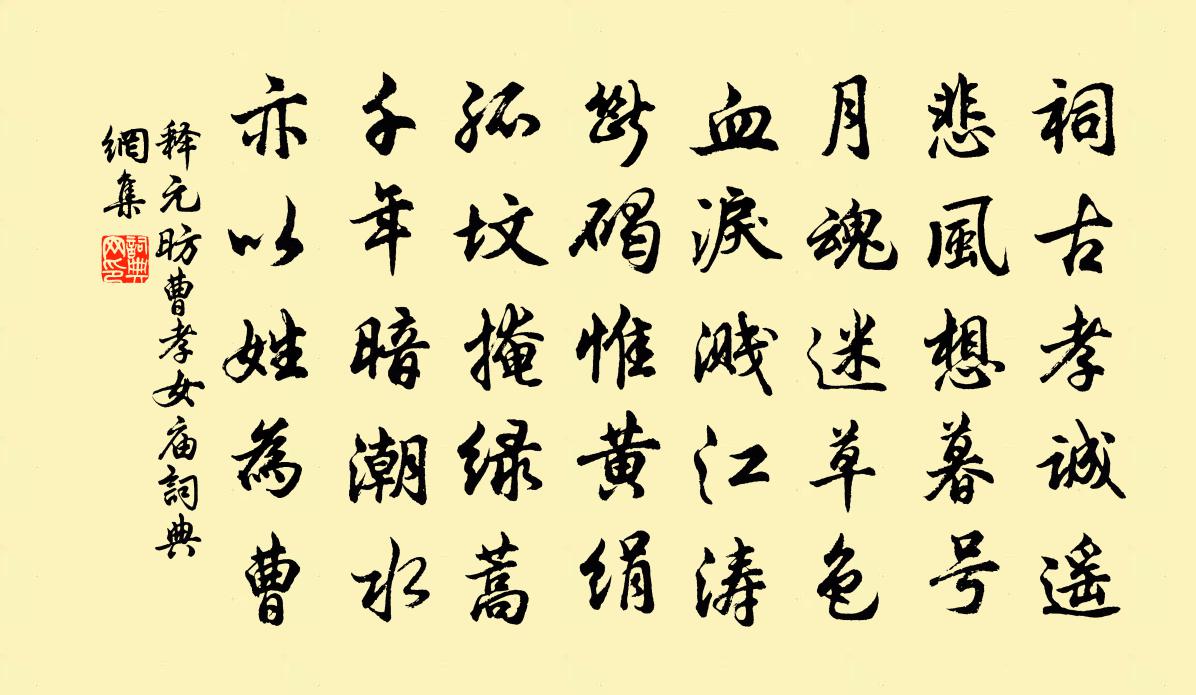 祠古孝诚遥
悲風想暮号
月魂迷草色
血淚溅江涛
断碣惟黄绢
孤坟掩绿蒿
千年暗潮水
亦以姓為曹
释元昉曹孝女庙詞典
網集
詞典
网印